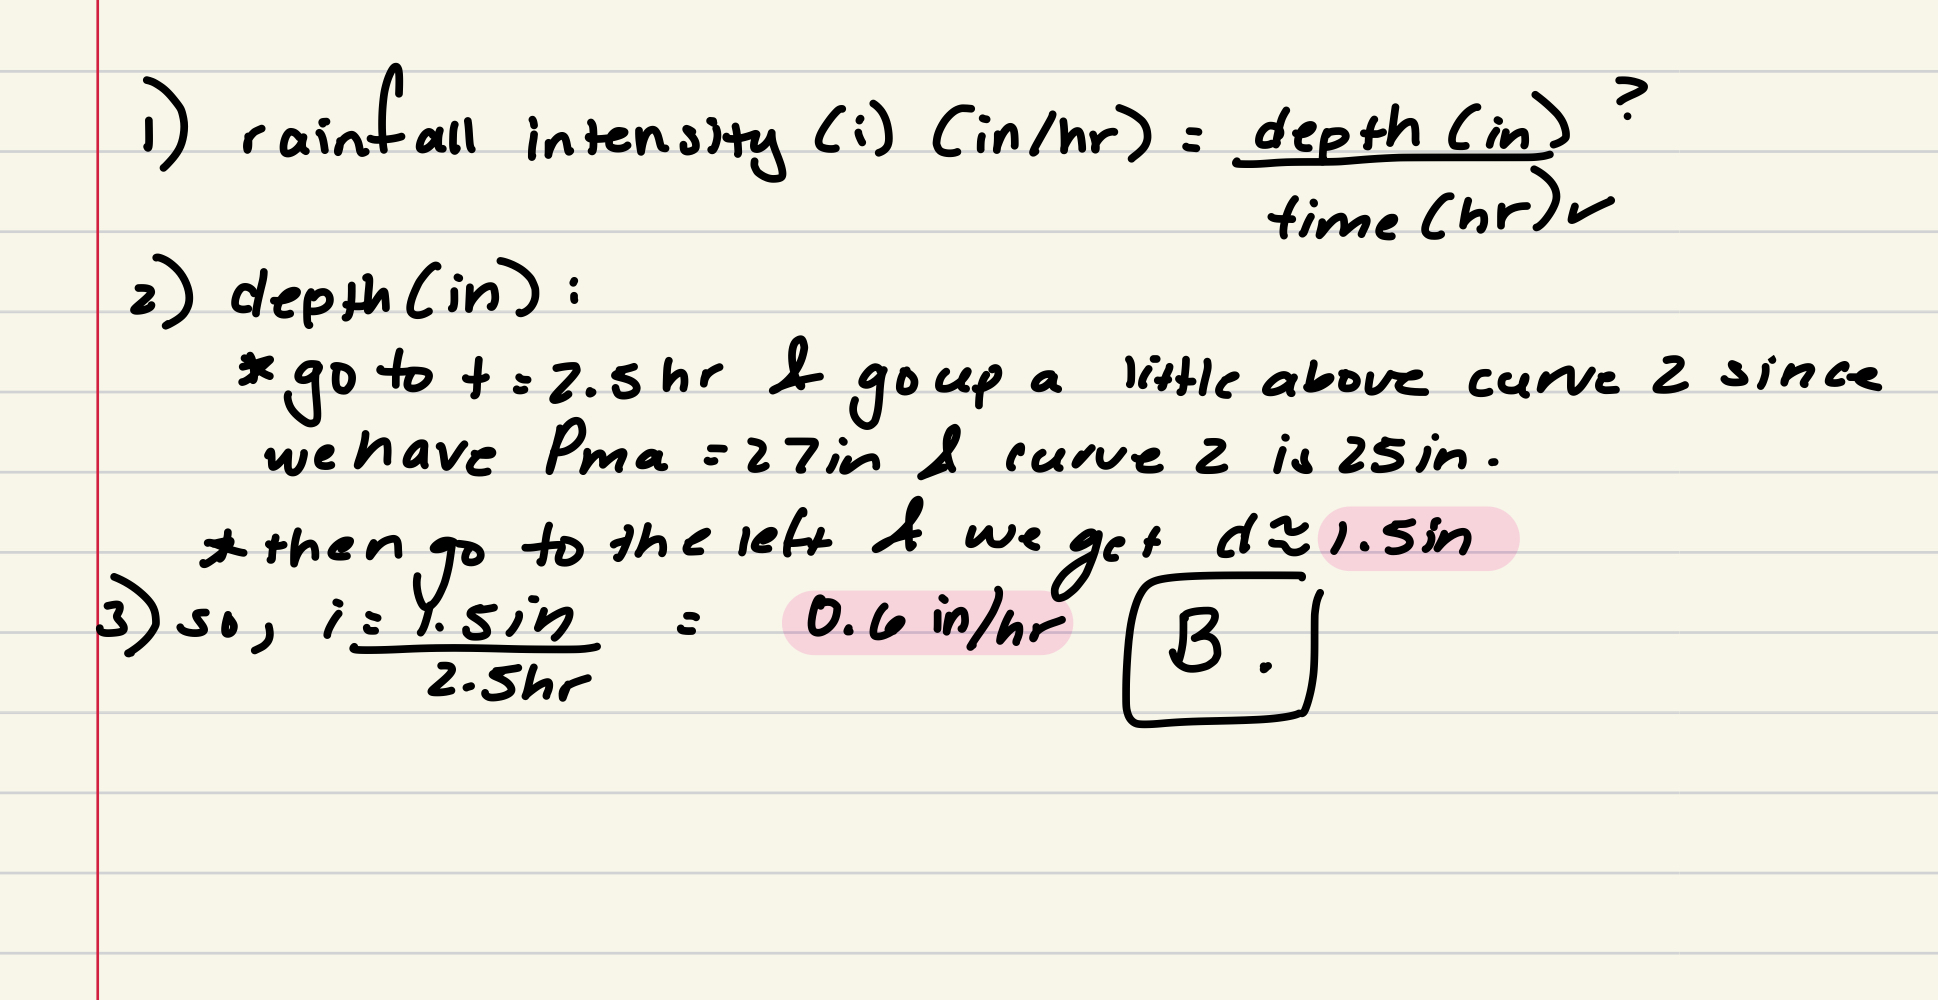 1) rainfall intensity (i) (in/hr) = depth (in) ?
time (hr) ✓
2) depth (in) :
* go to t = 2.5 hr & go up a little above curve 2 since
we have Pma = 27 in & curve 2 is 25 in.
* then go to the left & we get d ≈ 1.5 in
3) so, i = 1.5 in = 0.6 in/hr B.
2.5 hr